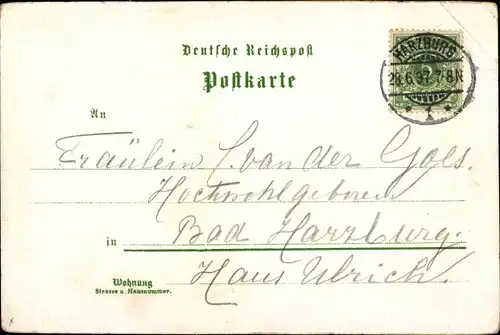 Deutsche Reichspost
Postkarte
HARZBURG
28.6.97. 7-8N
* 1 *
An
Fräulein C. van der Goes.
Hochwohlgeboren
in Bad Harzburg.
Wohnung Haus Ulrich.
Strasse u. Hausnummer.